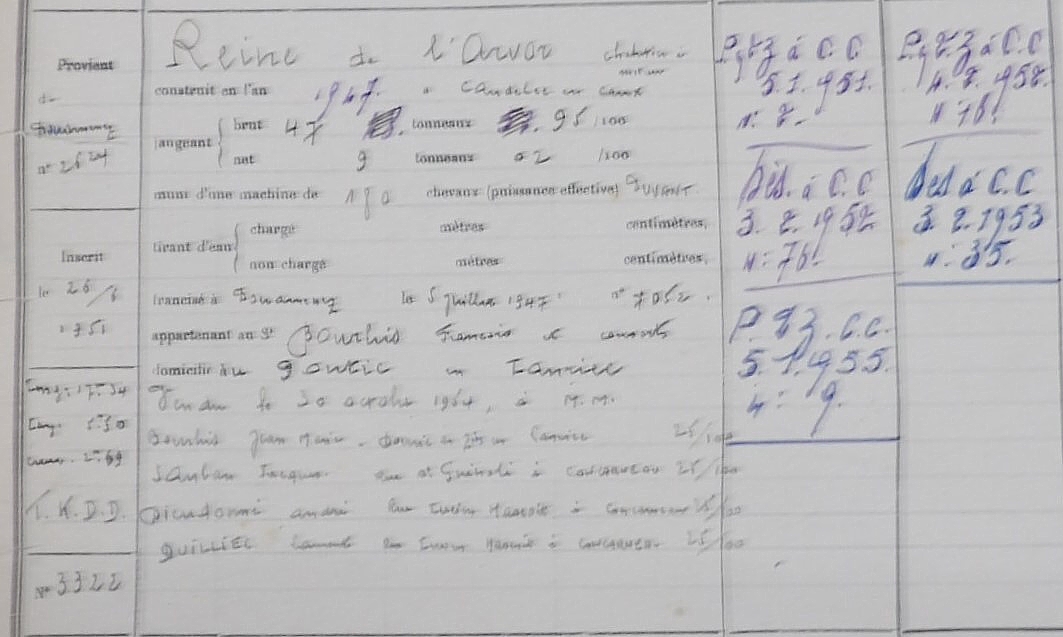 Provient
de
Douarnenez
n° 2624
Inscrit
le 26/6
1951
Long: 17m34
Larg. 5m50
Creux. 2m69
T.K.D.D.
N° 3322
Reine de l'Arvor chalutier à moteur
construit en l'an 1947 à Caudebec en Caux
jaugeant { brut 47 tonneaux 95/100
net 9 tonneaux 02/100
muni d'une machine de 180 chevaux (puissance effective)
tirant d'eau { chargé mètres centimètres,
non chargé mètres centimètres,
francisé à Douarnenez le 5 juillet 1947 n° 7052.
appartenant au Sr Bourhis François et consorts
domicilié à en Lanriec
Vendu le 30 octobre 1954, à M.M.
Bourhis Jean Marie en Lanriec 25/100
Jacques rue St Guénolé à Concarneau 25/100
Dieudonné andré rue à Concarneau 25/100
QUILLIEC rue à Concarneau 25/100
à C.C
5.1.1951.
n: 2-
Dés. à C.C
3.2.1952
n: 76.
C.C.
5.1.1955.
n: 9.
à C.C
4.2.1952.
n 76.
Des à C.C
3.2.1953
n: 35.